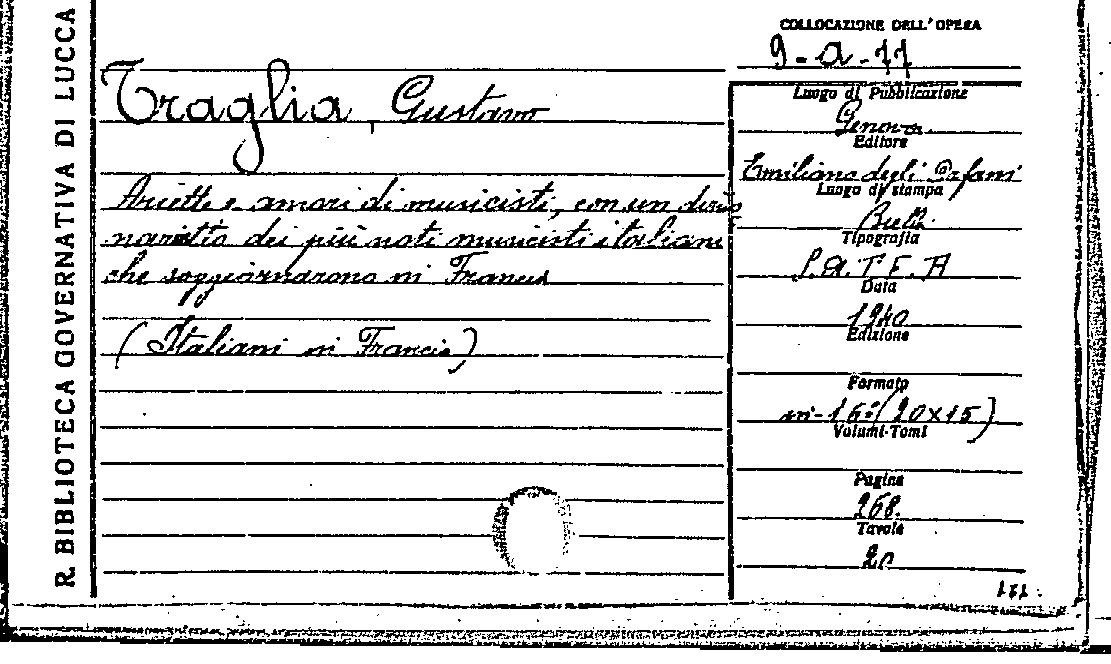 R. BIBLIOTECA GOVERNATIVA DI LUCCA
COLLOCAZIONE DELL'OPERA
9-a-77
Traglia, Gustavo
Luogo di Pubblicazione
Genova.
Editore
Emiliano degli Orfani
Luogo di stampa
Tipografia
S.A.T.E.A
Data
1940
Edizione
Formato
in-16°(20x15)
Volumi-Tomi
Pagine
268.
Tavole
20
e amori di musicisti, con un
dei più noti musicisti italiani
che soggiornarono in Francia
(Italiani in Francia)